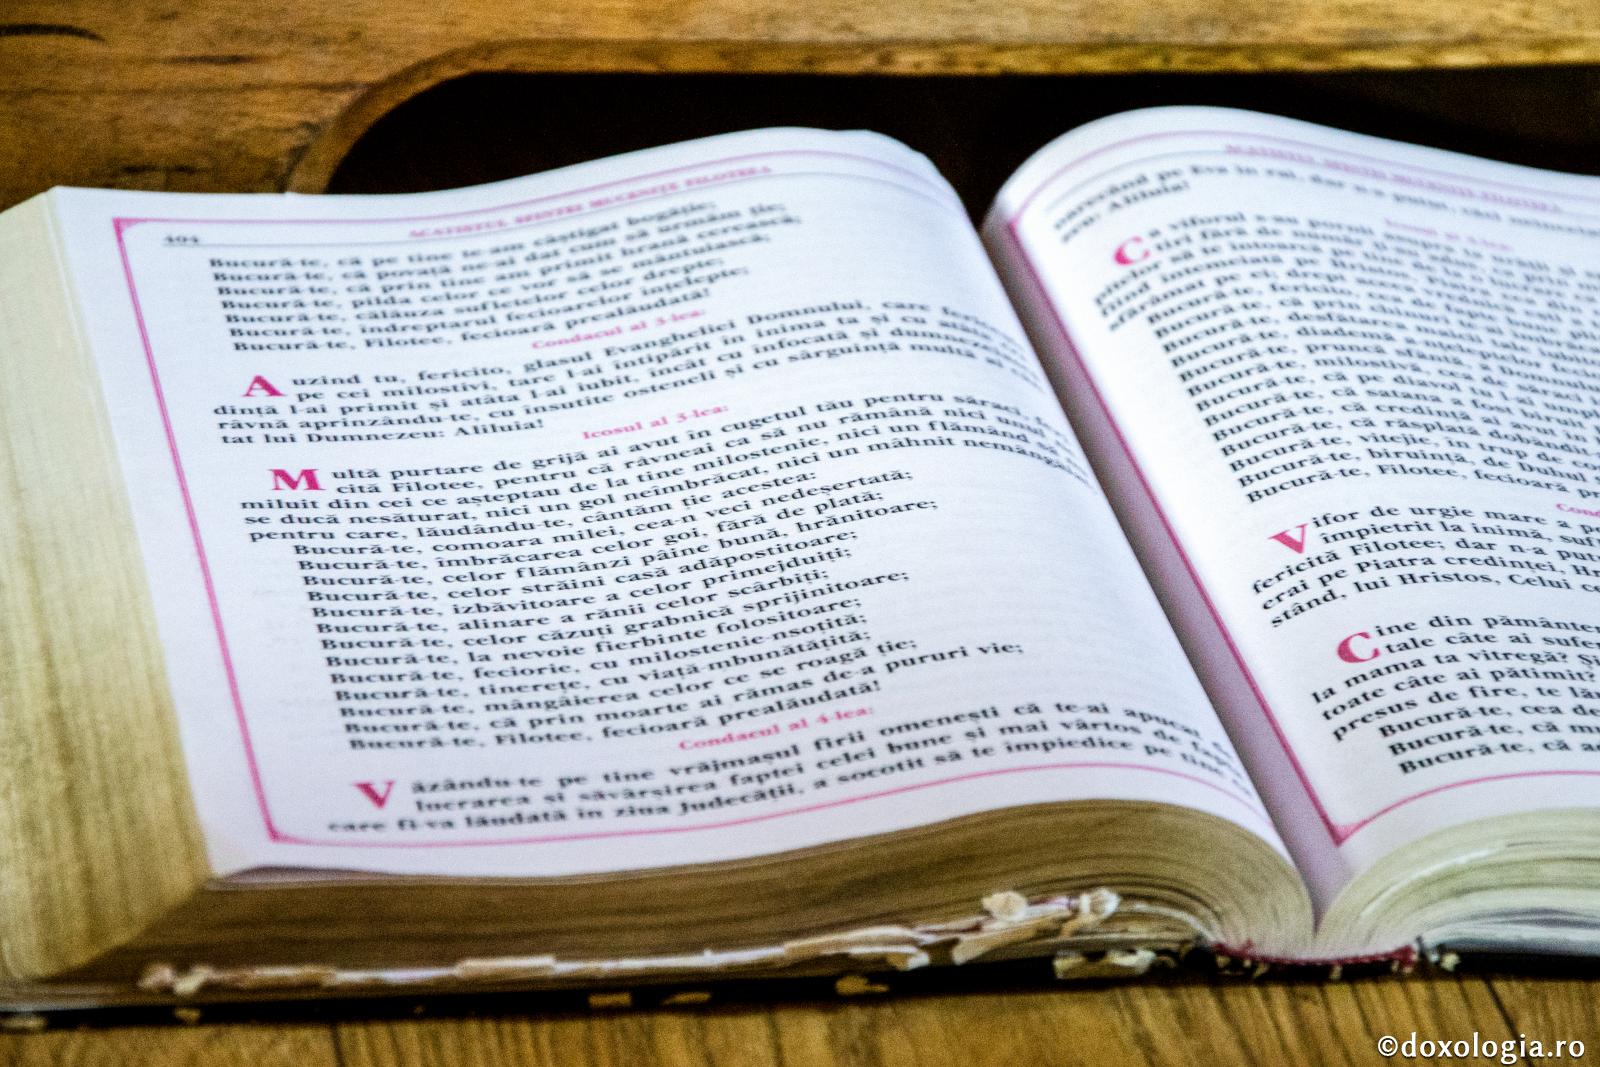 404
ACATISTUL SFINTEI MUCENIȚE FILOTEEA
Bucură-te, că pe tine te-am câștigat bogăție;
Bucură-te, că povață ne-ai dat cum să urmăm ție;
Bucură-te, că prin tine am primit hrană cerească;
Bucură-te, pilda celor ce vor să se mântuiască;
Bucură-te, călăuza sufletelor celor drepte;
Bucură-te, îndreptarul fecioarelor înțelepte;
Bucură-te, Filotee, fecioară prealăudată!
Condacul al 3-lea:
Auzind tu, fericito, glasul Evangheliei Domnului, care
pe cei milostivi, tare l-ai întipărit în inima ta și cu
dință l-ai primit și atâta l-ai iubit, încât cu înfocată și
râvnă aprinzându-te, cu însutite osteneli și cu sârguință multă ai
tat lui Dumnezeu: Aliluia!
Icosul al 3-lea:
Multă purtare de grijă ai avut în cugetul tău pentru săraci,
cită Filotee, pentru că râvneai ca să nu rămână nici unul
miluit din cei ce așteptau de la tine milostenie, nici un flămând
se ducă nesăturat, nici un gol neîmbrăcat, nici un mâhnit
pentru care, lăudându-te, cântăm ție acestea:
Bucură-te, comoara milei, cea-n veci nedeșertată;
Bucură-te, îmbrăcarea celor goi, fără de plată;
Bucură-te, celor flămânzi pâine bună, hrănitoare;
Bucură-te, celor străini casă adăpostitoare;
Bucură-te, izbăvitoare a celor primejduiți;
Bucură-te, alinare a rănii celor scârbiți;
Bucură-te, celor căzuți grabnică sprijinitoare;
Bucură-te, la nevoie fierbinte folositoare;
Bucură-te, feciorie, cu milostenie-nsoțită;
Bucură-te, tinerețe, cu viață-mbunătățită;
Bucură-te, mângâierea celor ce se roagă ție;
Bucură-te, că prin moarte ai rămas de-a pururi vie;
Bucură-te, Filotee, fecioară prealăudată!
Condacul al 4-lea:
Văzându-te pe tine vrăjmașul firii omenești că te-ai apucat
lucrarea și săvârșirea faptei celei bune și mai vârtos de
care fi-va lăudată în ziua Judecății, a socotit să te împiedice pe tine
ACATISTUL SFINTEI MUCENIȚE FILOTEEA
pe Eva în rai, dar n-a putut, căci
zeu: Aliluia!
Icosul al 4-lea:
Ca viforul s-au pornit asupra ta
fără de număr
pilelor să te întoarcă pe tine de la
fiind întemeiată pe Hristos, Piatra cea din
sfărâmat pe ei, drept aceea,
Bucură-te, fericită
Bucură-te, cea de fapte bune
Bucură-te, că prin chinuri
Bucură-te, desfătarea
Bucură-te, diademă a înțelepților
Bucură-te, pruncă sfântă, a Domnului
Bucură-te, milostivă, cea de săraci
Bucură-te, că pe diavol tu l-ai
Bucură-te, că satana a fost biruit
Bucură-te, că credință ai avut în
Bucură-te, că răsplată dobândit
Bucură-te, vitejie, în trup de
Bucură-te, biruință, de Duhul
Bucură-te, Filotee, fecioară
Vifor de urgie mare a
împietrit la inimă,
fericită Filotee; dar n-a
erai pe Piatra credinței,
stând, lui Hristos, Celui
Cine din pământeni
tale câte ai
la mama ta vitregă? Și
toate câte ai pătimit?
presus de fire, te
Bucură-te, cea
Bucură-te, că
Bucură-te, că
©doxologia.ro